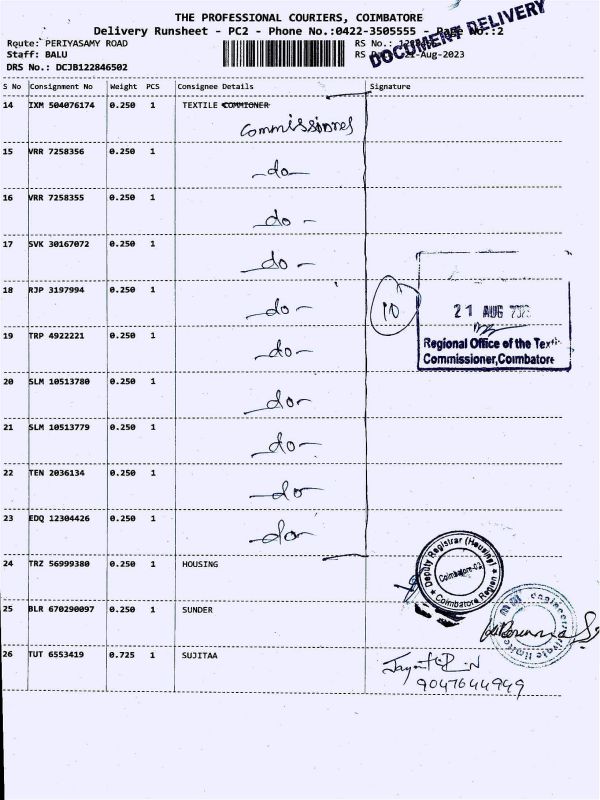 THE PROFESSIONAL COURIERS, COIMBATORE
Delivery Runsheet - PC2 - Phone No.:0422-3505555 - Page No.:2
DOCUMENT DELIVERY
Route: PERIYASAMY ROAD
RS No.:
Staff: BALU
RS -Aug-2023
DRS No.: DCJB122846502
S No Consignment No Weight PCS Consignee Details Signature
14 IXM 504076174 0.250 1 TEXTILE COMMIONER
Commissioner
15 VRR 7258356 0.250 1
-do-
16 VRR 7258355 0.250 1
-do-
17 SVK 30167072 0.250 1
-do-
18 RJP 3197994 0.250 1
-do-
10
21 AUG 2023
19 TRP 4922221 0.250 1
-do-
Regional Office of the Textile
Commissioner,Coimbatore
20 SLM 10513780 0.250 1
-do-
21 SLM 10513779 0.250 1
-do-
22 TEN 2036134 0.250 1
-do-
23 EDQ 12304426 0.250 1
-do-
24 TRZ 56999380 0.250 1 HOUSING
Deputy Registrar (Housing)
Coimbatore-02
Coimbatore Region
25 BLR 670290097 0.250 1 SUNDER
26 TUT 6553419 0.725 1 SUJITAA
9047644949